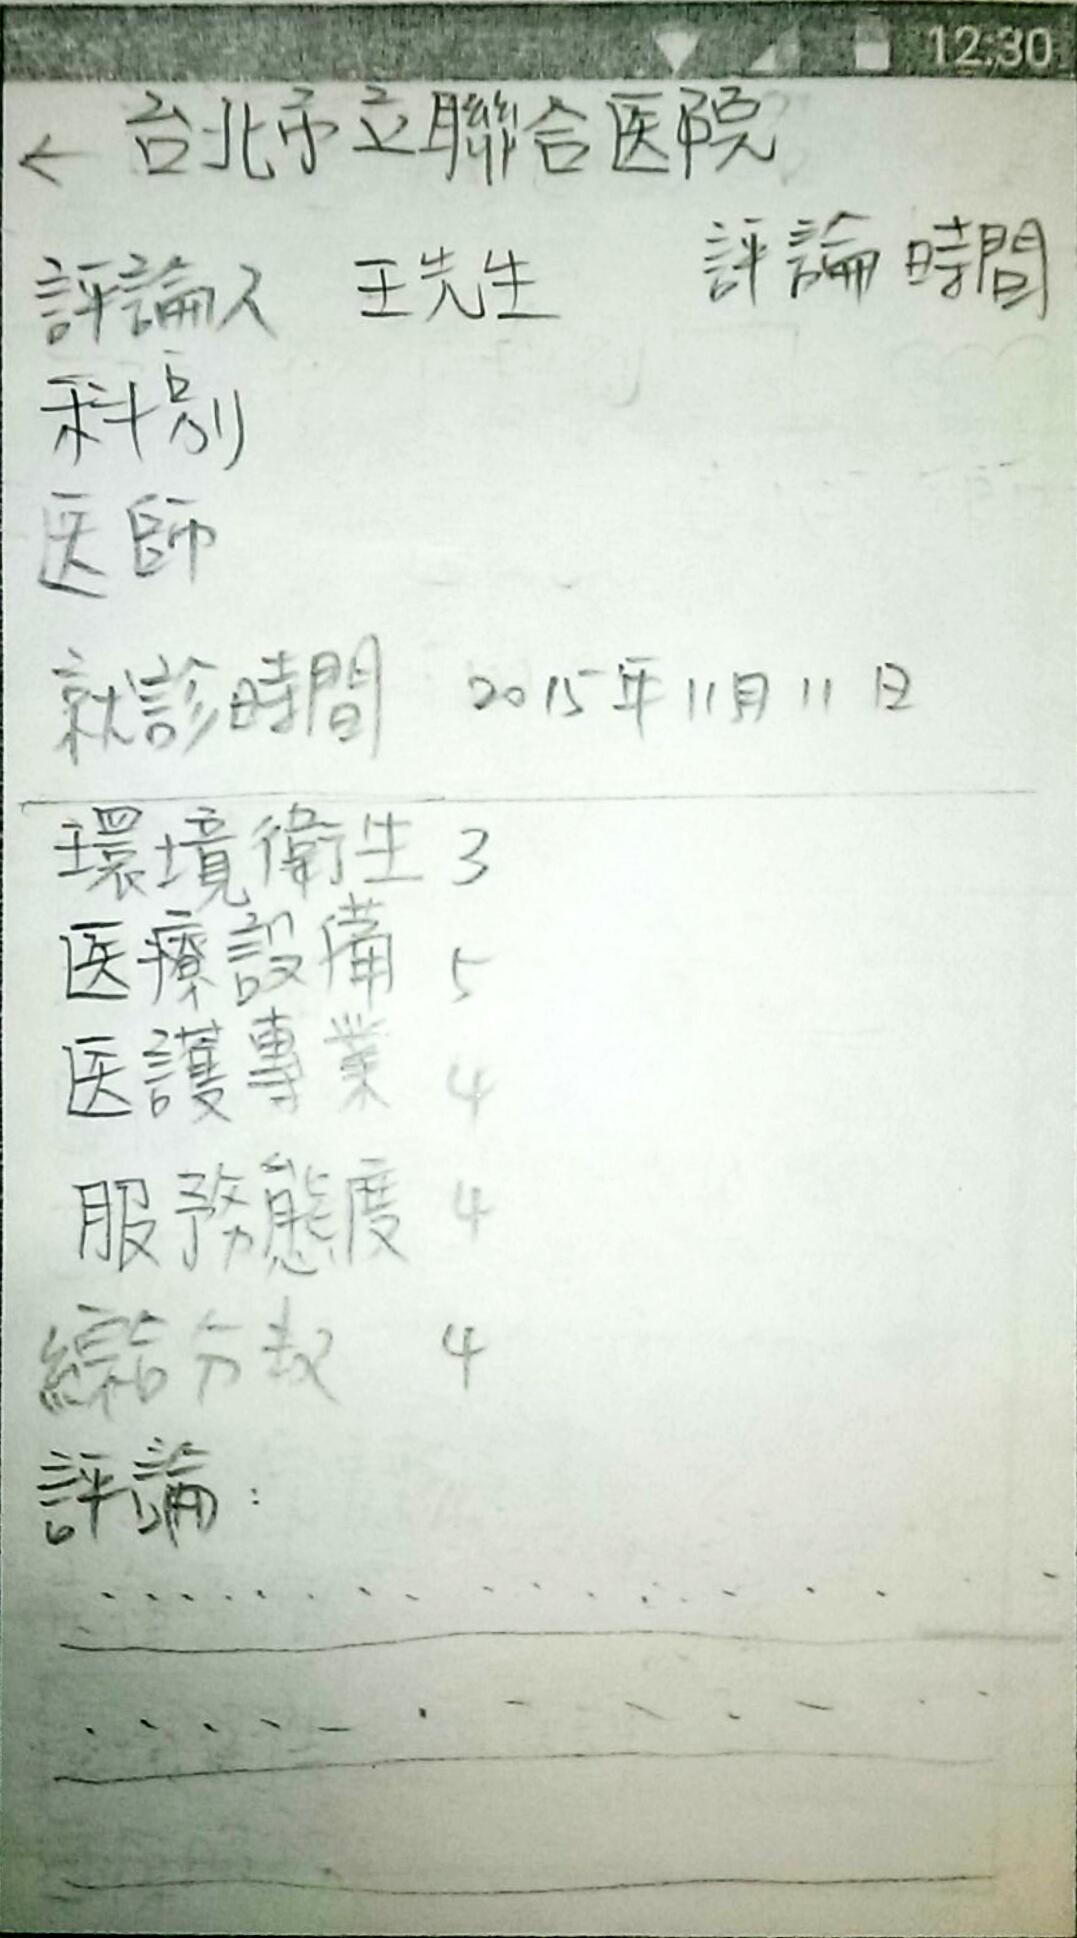 12:30
← 台北市立聯合医院
評論人 王先生 評論時間
科別
医師
就診時間 2015年11月11日
環境衛生 3
医療設備 5
医護專業 4
服務態度 4
綜合分数 4
評論: